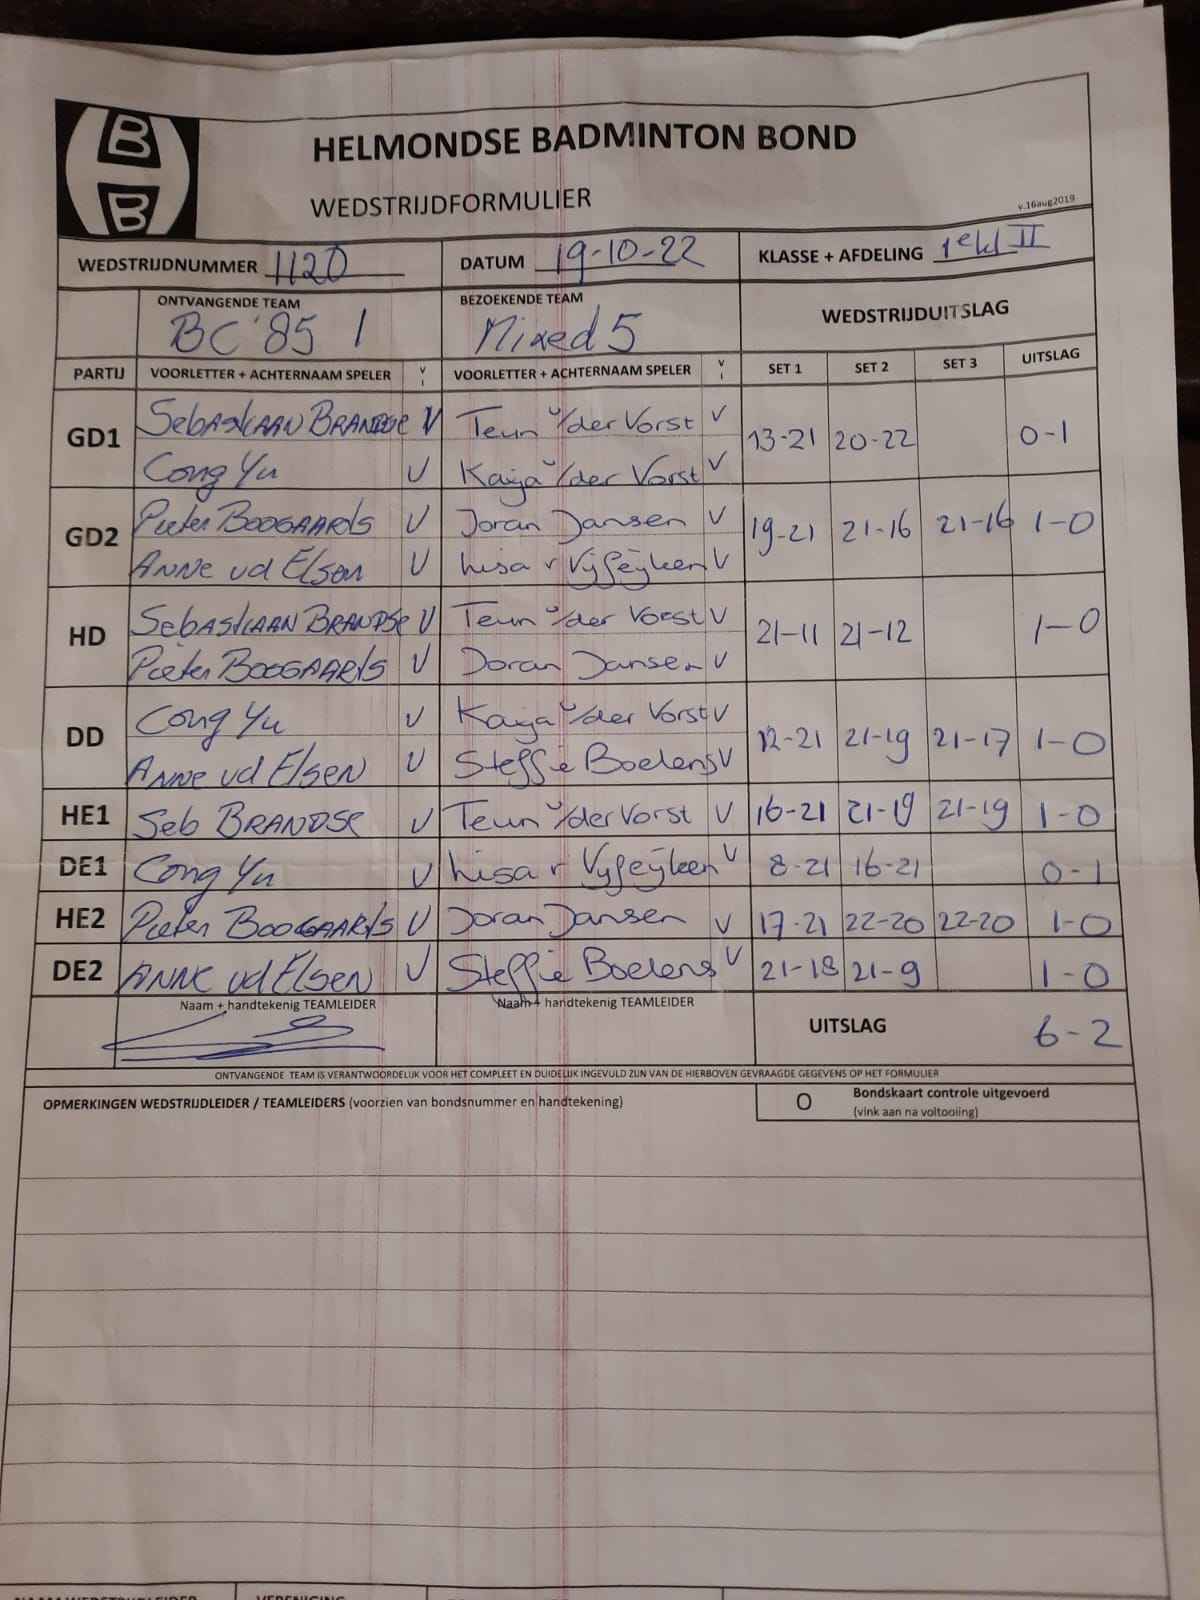 B
B
HELMONDSE BADMINTON BOND
WEDSTRIJDFORMULIER
v.16aug2019
WEDSTRIJDNUMMER 1120 DATUM 19-10-22 KLASSE + AFDELING 1e kl II
ONTVANGENDE TEAM BEZOEKENDE TEAM WEDSTRIJDUITSLAG
BC '85 1 Mixed 5
PARTIJ VOORLETTER + ACHTERNAAM SPELER V VOORLETTER + ACHTERNAAM SPELER V SET 1 SET 2 SET 3 UITSLAG
GD1 Sebastiaan Brandse V Teun v/der Vorst V 13-21 20-22 0-1
Cong Yu V Kaija v/der Vorst V
GD2 Pieter Boogaards V Joran Jansen V 19-21 21-16 21-16 1-0
Anne vd Elsen V Lisa v Vijfeijken V
HD Sebastiaan Brandse V Teun v/der Vorst V 21-11 21-12 1-0
Pieter Boogaards V Joran Jansen V
DD Cong Yu V Kaija v/der Vorst V 12-21 21-19 21-17 1-0
Anne vd Elsen V Steffie Boelens V
HE1 Seb Brandse V Teun v/der Vorst V 16-21 21-19 21-19 1-0
DE1 Cong Yu V Lisa v Vijfeijken V 8-21 16-21 0-1
HE2 Pieter Boogaards V Joran Jansen V 17-21 22-20 22-20 1-0
DE2 Anne vd Elsen V Steffie Boelens V 21-18 21-9 1-0
Naam + handtekenig TEAMLEIDER Naam + handtekenig TEAMLEIDER UITSLAG 6-2
ONTVANGENDE TEAM IS VERANTWOORDELIJK VOOR HET COMPLEET EN DUIDELIJK INGEVULD ZIJN VAN DE HIERBOVEN GEVRAAGDE GEGEVENS OP HET FORMULIER
OPMERKINGEN WEDSTRIJDLEIDER / TEAMLEIDERS (voorzien van bondsnummer en handtekening) O Bondskaart controle uitgevoerd
(vink aan na voltooiing)
NAAM WEDSTRIJDLEIDER VERENIGING